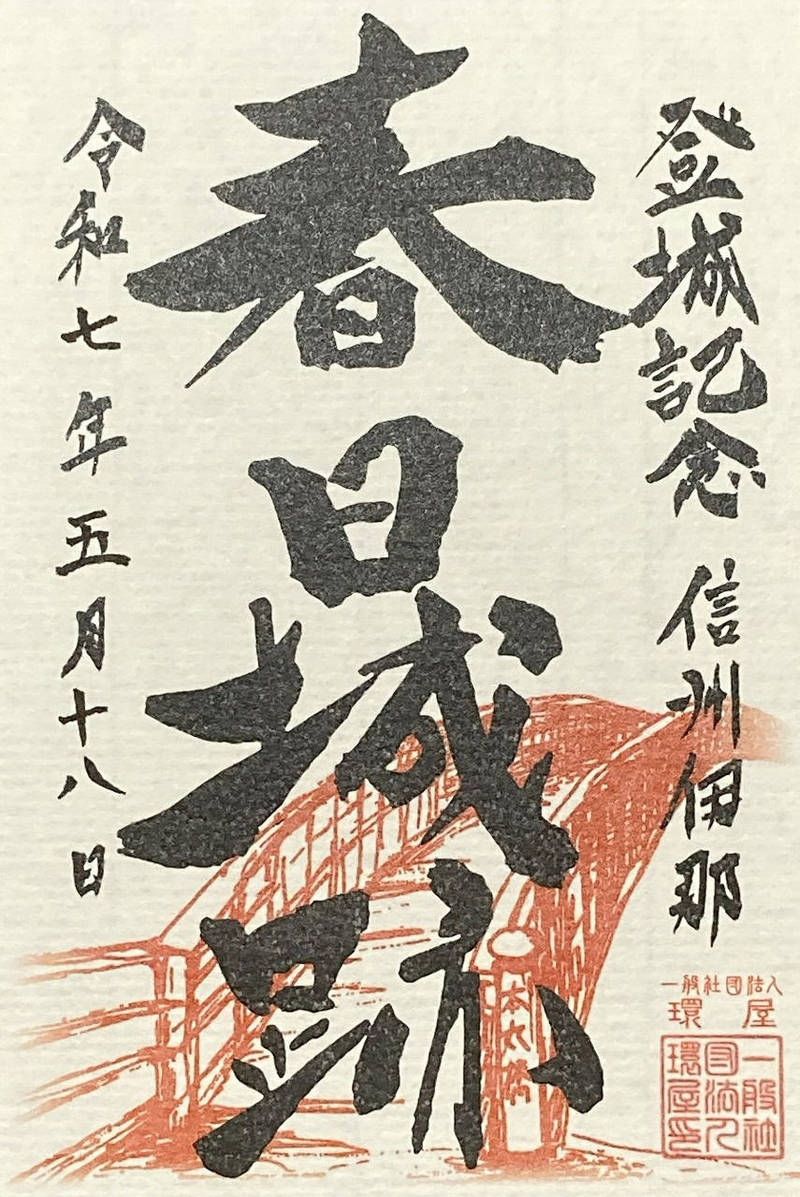 登城記念 信州伊那
春日城跡
令和七年五月十八日
本丸橋
一般社団法人
環屋
一般社
団法人
環屋印